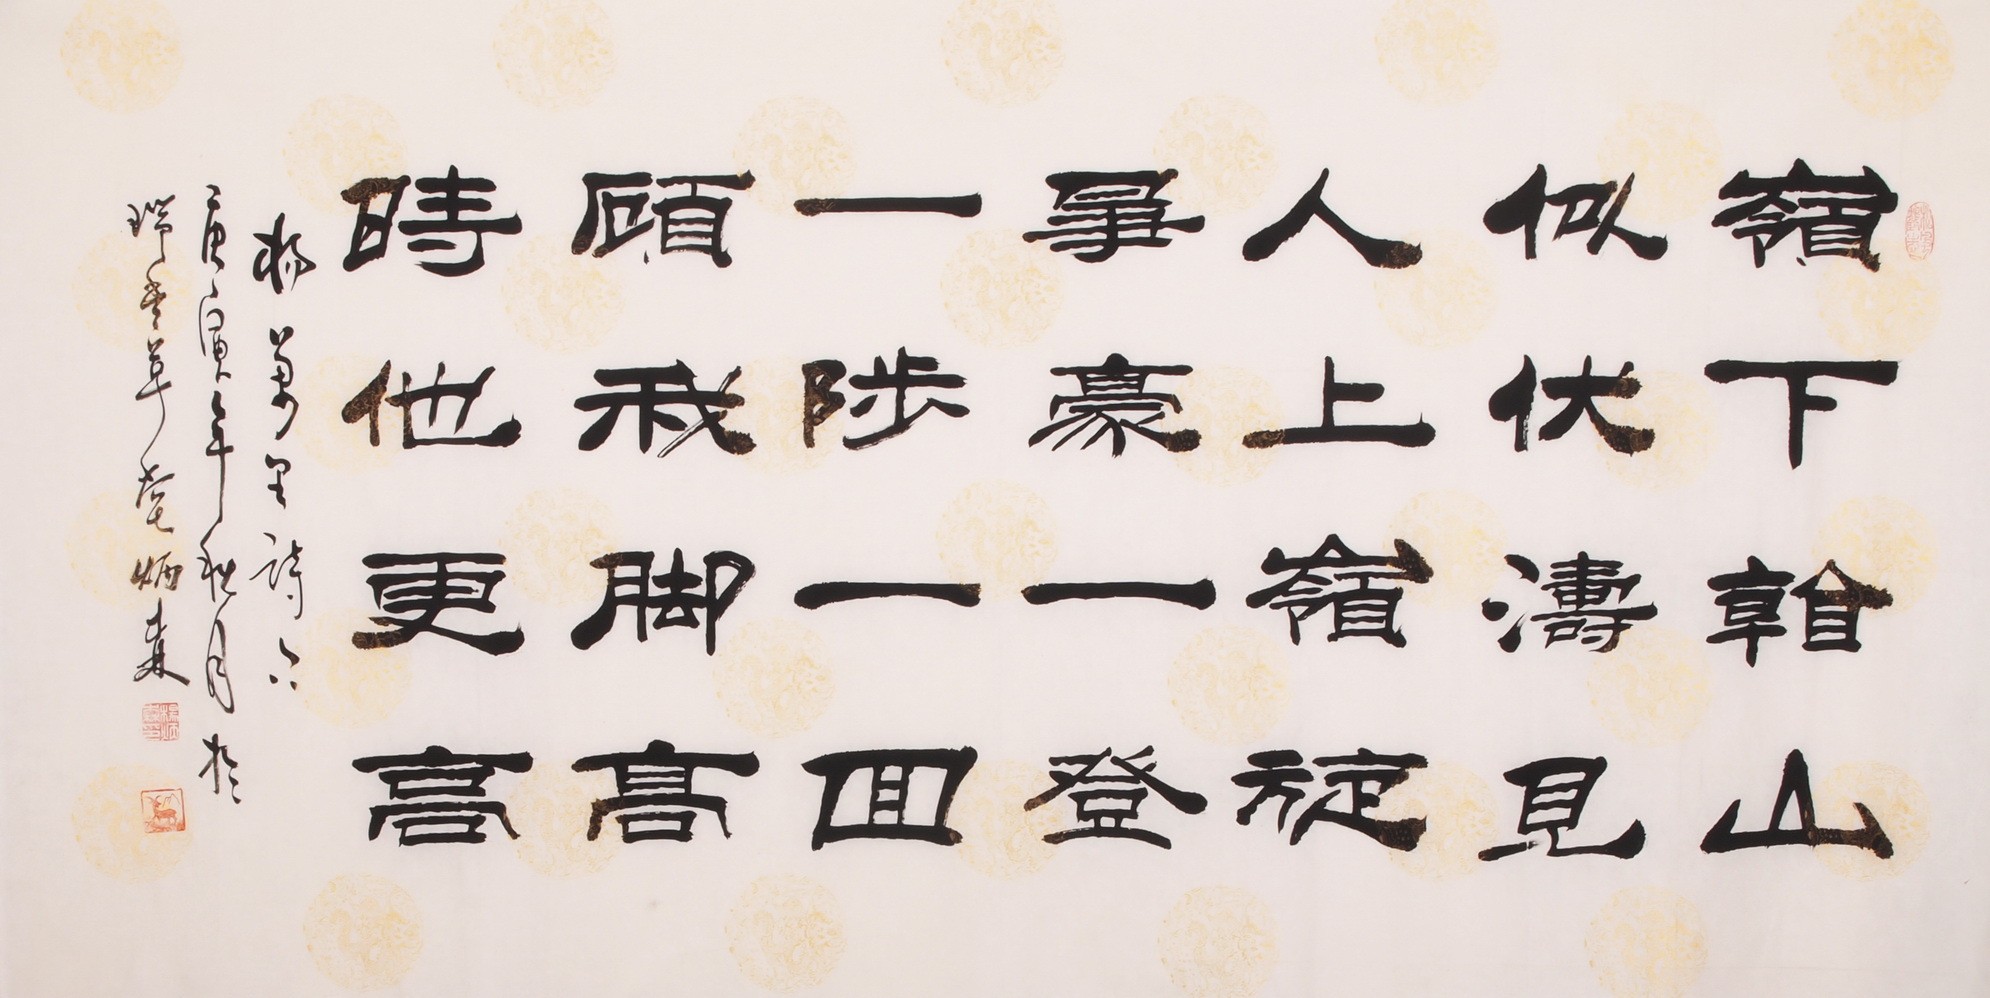 嶺下看山
似伏濤見
人上嶺旋
爭豪一登
一陟一回
顧我脚高
時他更高
楊萬里詩
庚寅年秋月於
瑞草堂炳森